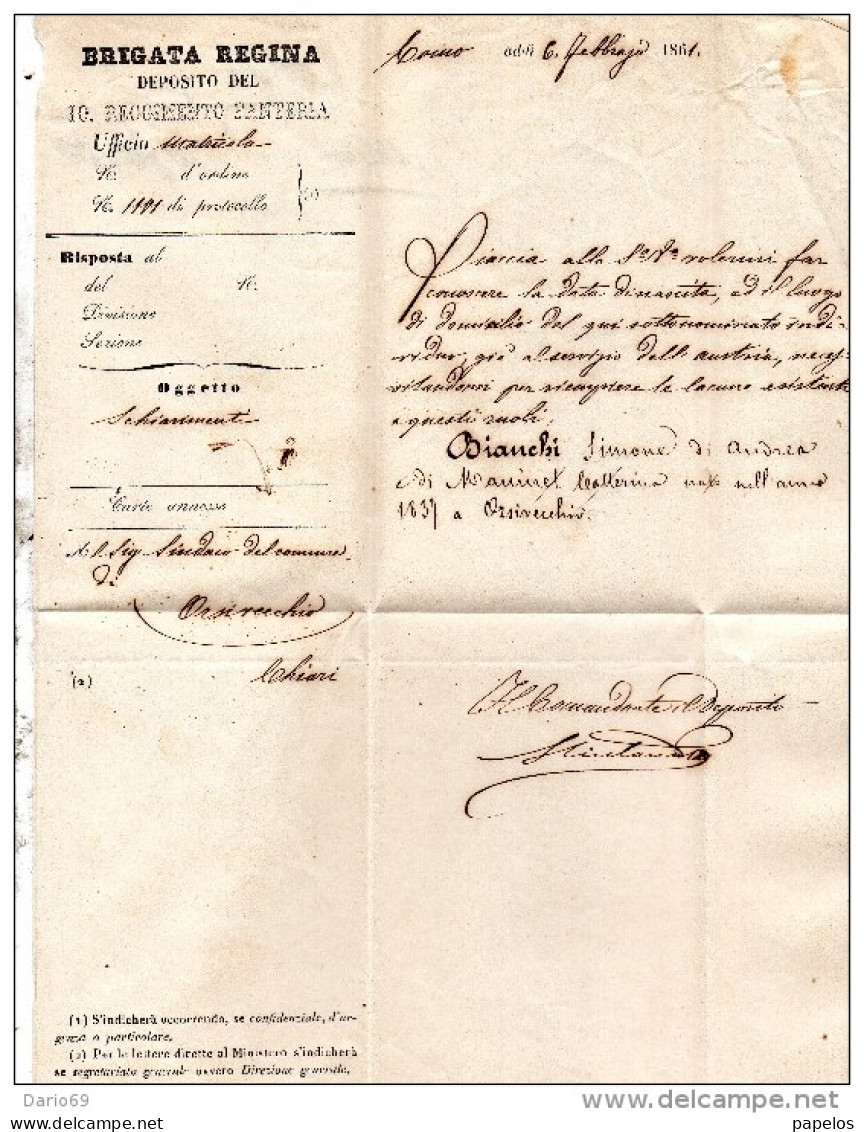 BRIGATA REGINA
DEPOSITO DEL
10. REGGIMENTO FANTERIA
Ufficio Matricola
N. d'ordine
N. 1191 di protocollo (1)
Risposta al
del N.
Divisione
Sezione
Oggetto
Schiarimenti
Carte annesse
Al Sig. Sindaco del comune
di
Orsivecchio
(2) Chiari
(1) S'indicherà occorrendo, se confidenziale, d'ur-
genza o particolare.
(2) Per le lettere dirette al Ministero s'indicherà
se segretariato generale ovvero Direzione generale.
Como addì 6. Febbrajo 1861.
Piaccia alla S.a V.a volermi far
conoscere la data di nascita, ed il luogo
di domicilio del qui sottonominato indi-
viduo, già al servizio dell'austria, neces-
sitandomi per riempiere le lacune esistenti
a questi ruoli,
Bianchi Simone di Andrea
e di Catterina nato nell'anno
1837 a Orsivecchio.
Il Comandante il Deposito
Dario69
delcampe.net
papelos